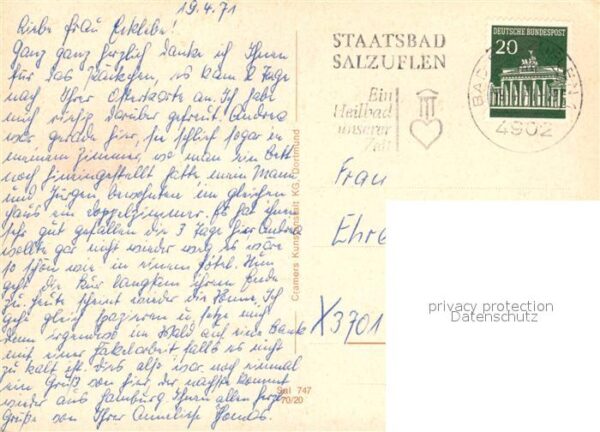 19.4.71
Liebe Frau
Ganz ganz herzlich danke ich Ihnen
für das Päckchen, es kam 2 Tage
nach Ihrer Osterkarte an. Ich habe
mich riesig darüber gefreut. Andrea
war gerade hier, sie schlief sogar in
meinem Zimmer, wo man ein Bett
noch hineingestellt hatte mein Mann
und Jürgen bewohnten im gleichen
Haus ein Doppelzimmer. Es hat ihnen
sehr gut gefallen die 3 Tage hier Andrea
wollte gar nicht wieder weg es wäre
so schön wie in einem Hotel. Nun
geht die Kur langsam ihrem Ende
zu heute scheint wieder die Sonne. Ich
gehe gleich spazieren u. setze mich
dann irgendwo im Wald auf eine Bank
mit einer Häkelarbeit falls es nicht
zu kalt ist. Dies also war noch einmal
ein Gruß von hier der nächste kommt
wieder aus Hamburg. Ihnen allen herzl.
Grüße von Ihrer Anneliese
STAATSBAD
SALZUFLEN
Ein
Heilbad
unserer
Zeit
DEUTSCHE BUNDESPOST
20
BAD
4902
Cramers Kunstanstalt KG, Dortmund
Sal 747
70/20
Frau
Ehr
X3701
privacy protection
Datenschutz